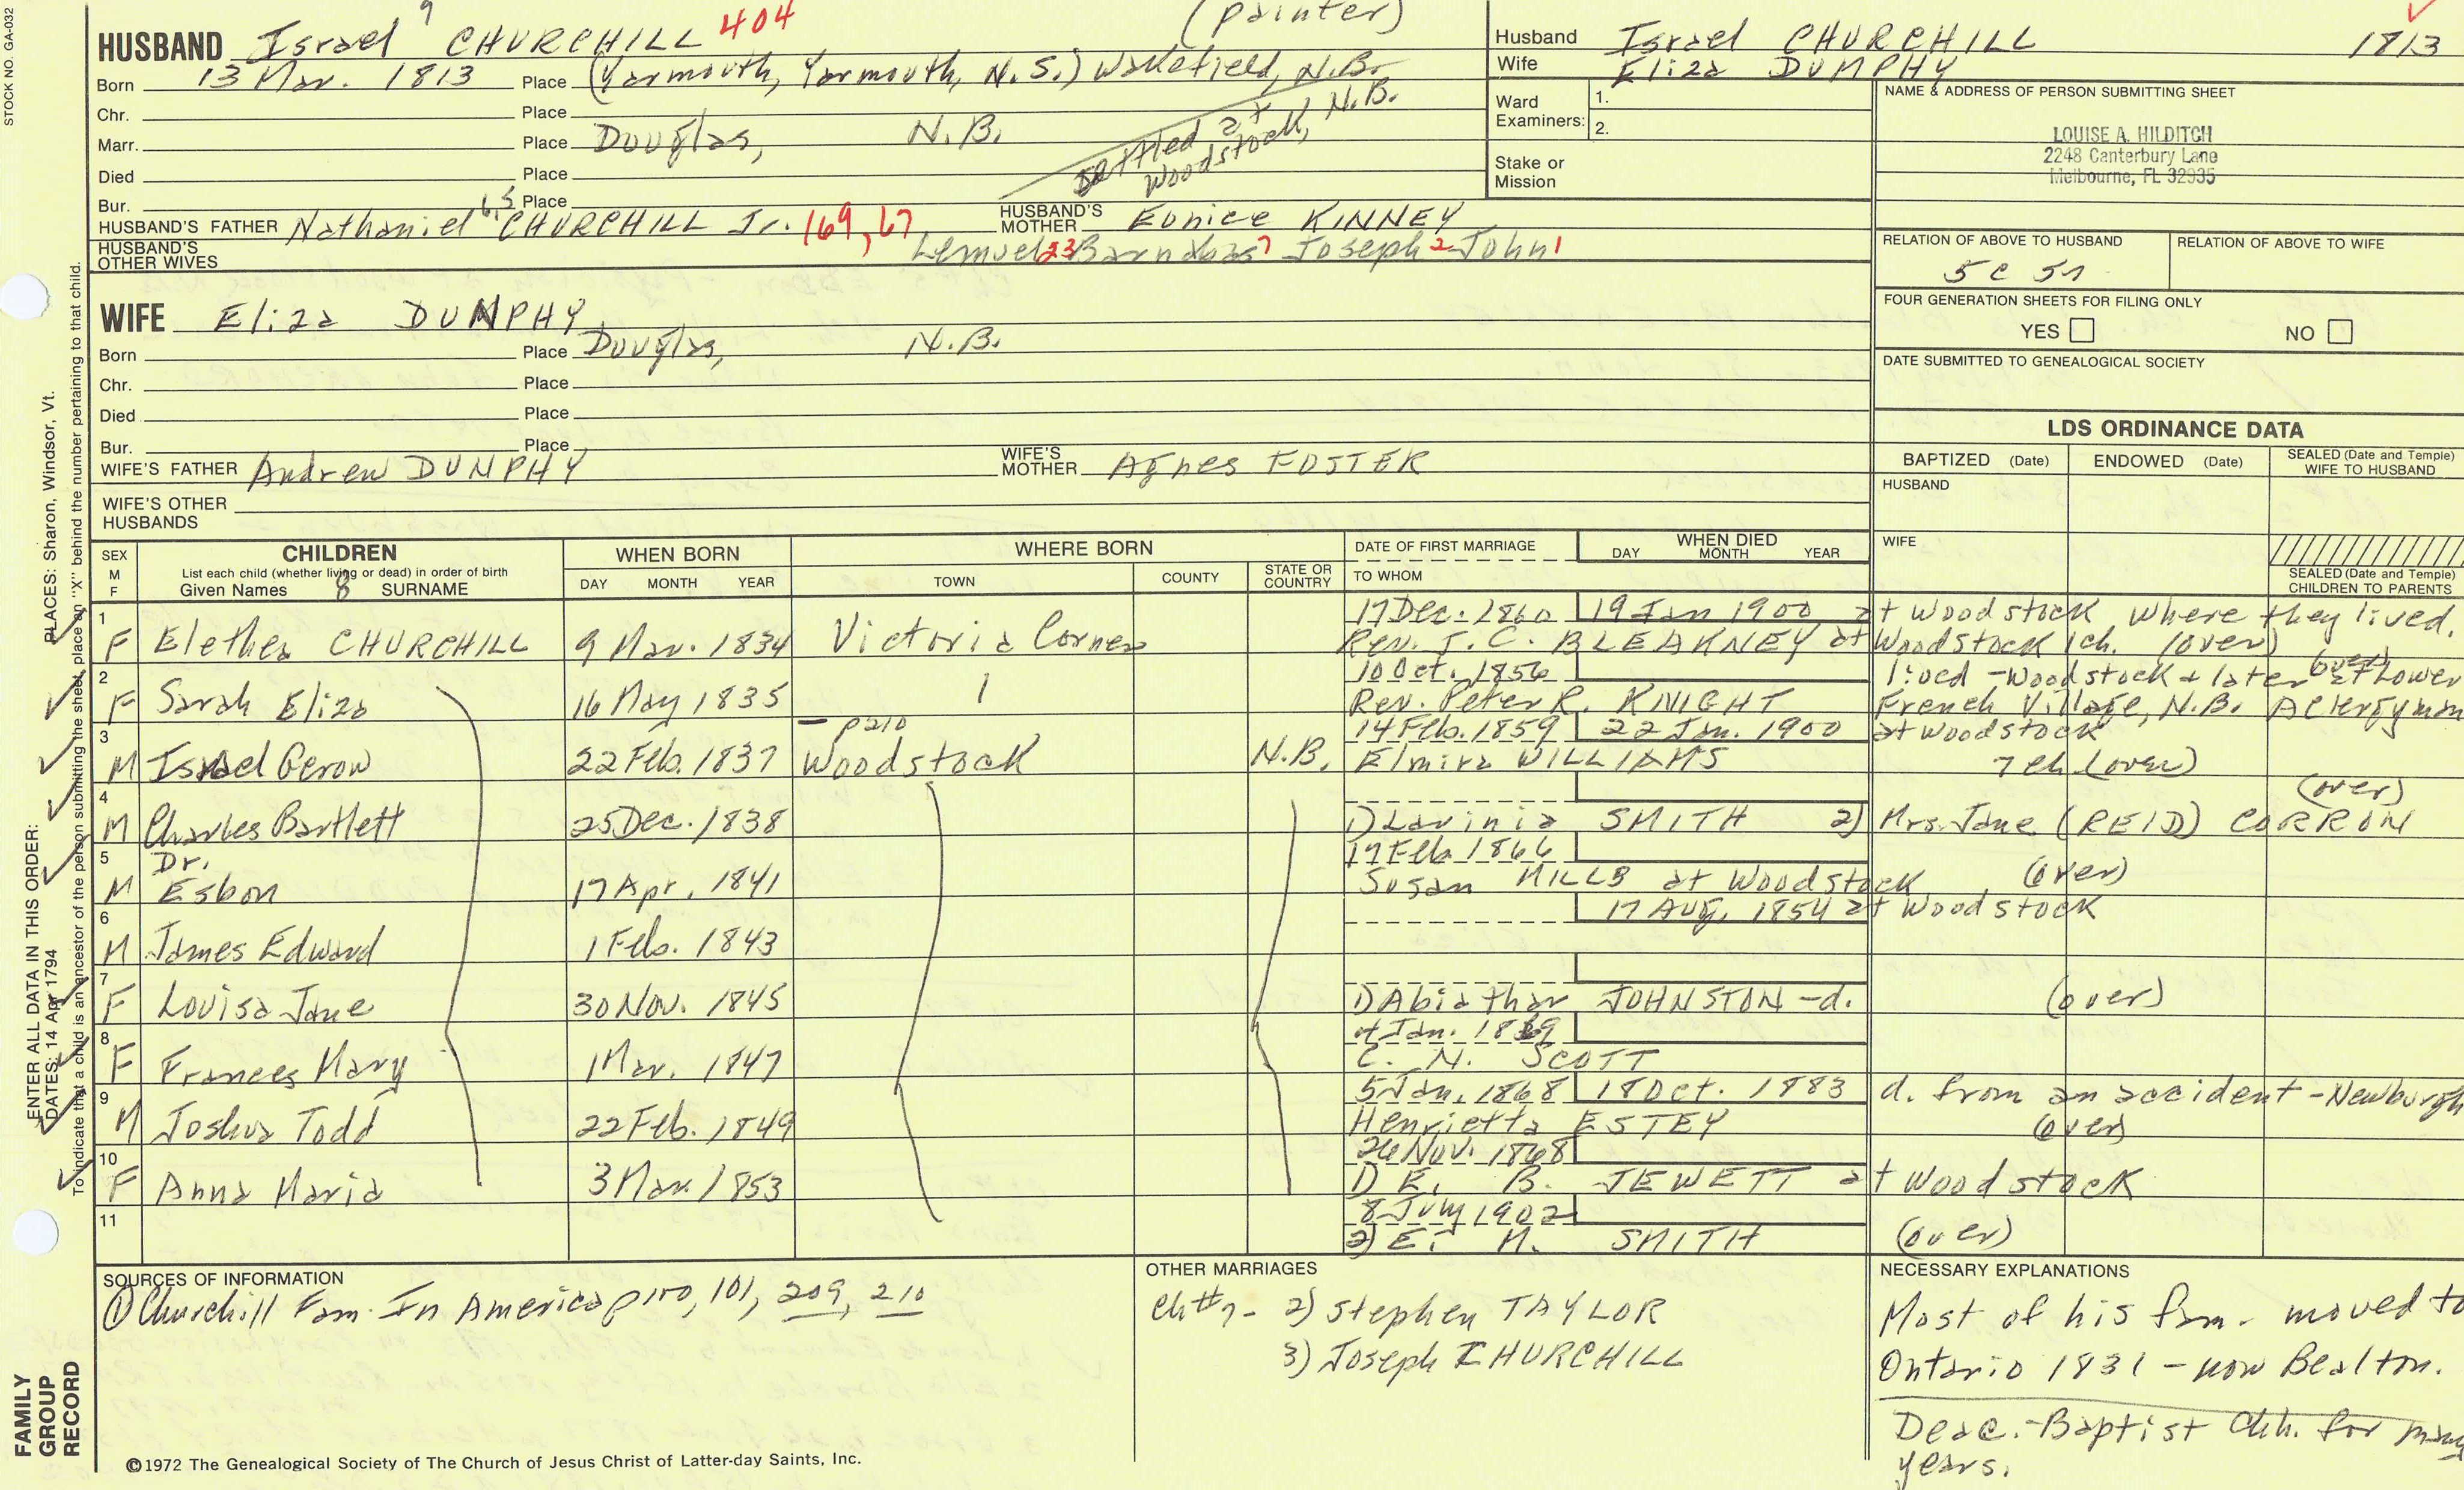 STOCK NO. GA-032
9
HUSBAND Israel CHURCHILL 404 (painter)
Born 13 Mar. 1813 Place (Yarmouth, Yarmouth, N.S.) Wakefield, N.B.
Chr. Place
settled at Woodstock, N.B.
Marr. Place Douglas, N.B.
Died Place
Bur. Place
HUSBAND'S FATHER Nathaniel 6,5 CHURCHILL Jr. 169, 67 HUSBAND'S MOTHER Eunice KINNEY
HUSBAND'S OTHER WIVES Lemuel 23 Barnabas 7 Joseph 2 John 1
WIFE Eliza DUMPHY
Born Place Douglas, N.B.
Chr. Place
Died Place
Bur. Place
WIFE'S FATHER Andrew DUMPHY WIFE'S MOTHER Agnes FOSTER
WIFE'S OTHER HUSBANDS
Husband Israel CHURCHILL 1813
Wife Eliza DUMPHY
Ward Examiners: 1.
2.
Stake or Mission
NAME & ADDRESS OF PERSON SUBMITTING SHEET
LOUISE A. HILDITCH
2248 Canterbury Lane
Melbourne, FL 32935
RELATION OF ABOVE TO HUSBAND RELATION OF ABOVE TO WIFE
5c 5r
FOUR GENERATION SHEETS FOR FILING ONLY
YES NO
DATE SUBMITTED TO GENEALOGICAL SOCIETY
LDS ORDINANCE DATA
BAPTIZED (Date) ENDOWED (Date) SEALED (Date and Temple) WIFE TO HUSBAND
HUSBAND
WIFE
SEALED (Date and Temple) CHILDREN TO PARENTS
SEX M F CHILDREN WHEN BORN WHERE BORN DATE OF FIRST MARRIAGE WHEN DIED DAY MONTH YEAR
List each child (whether living or dead) in order of birth
Given Names 8 SURNAME DAY MONTH YEAR TOWN COUNTY STATE OR COUNTRY TO WHOM
1 17 Dec. 1860 19 Jan 1900 at Woodstock where they lived.
F Elethea CHURCHILL 9 Mar. 1834 Victoria Corner Rev. J. C. BLEAKNEY at Woodstock 1ch. (over)
2 10 Oct. 1856 lived - Woodstock & later (over) at Lower
F Sarah Eliza 16 May 1835 Rev. Peter R. KNIGHT French Village, N.B. A clergyman
3 - p210 14 Feb. 1859 22 Jan. 1900 at Woodstock
M Israel Gerow 22 Feb. 1837 Woodstock N.B. Elmira WILLIAMS 7 ch (over)
4 (over)
M Charles Bartlett 25 Dec. 1838 1) Lavinia SMITH 2) Mrs. Jane (REID) CORRON
5 Dr. 17 Feb 1866
M Esbon 17 Apr. 1841 Susan MILLS at Woodstock (over)
6 17 Aug. 1854 at Woodstock
M James Edward 1 Feb. 1843
7
F Louisa Jane 30 Nov. 1845 1) Abiathar JOHNSTON - d. (over)
8 Jan. 1869
F Frances Mary 1 Mar. 1847 C. N. SCOTT
9 5 Jan. 1868 18 Oct. 1883 d. from an accident - Newburgh
M Joshua Todd 22 Feb. 1849 Henrietta ESTEY (over)
10 26 Nov. 1868
F Anna Maria 3 Mar. 1853 1) E. B. JEWETT at Woodstock
11 8 July 1902
2) E. M. SMITH (over)
SOURCES OF INFORMATION
① Churchill Fam. In America p 150, 101, 209, 210
OTHER MARRIAGES
Ch #7 - 2) Stephen TAYLOR
3) Joseph CHURCHILL
NECESSARY EXPLANATIONS
Most of his fam. moved to
Ontario 1831 - now Bealton.
Deac. - Baptist Chh. for many
years.
©1972 The Genealogical Society of The Church of Jesus Christ of Latter-day Saints, Inc.
FAMILY GROUP RECORD
ENTER ALL DATA IN THIS ORDER:
PLACES: Sharon, Windsor, Vt.
DATES: 14 Apr 1794
To indicate that a child is an ancestor of the person submitting the sheet, place an "X" behind the number pertaining to that child.